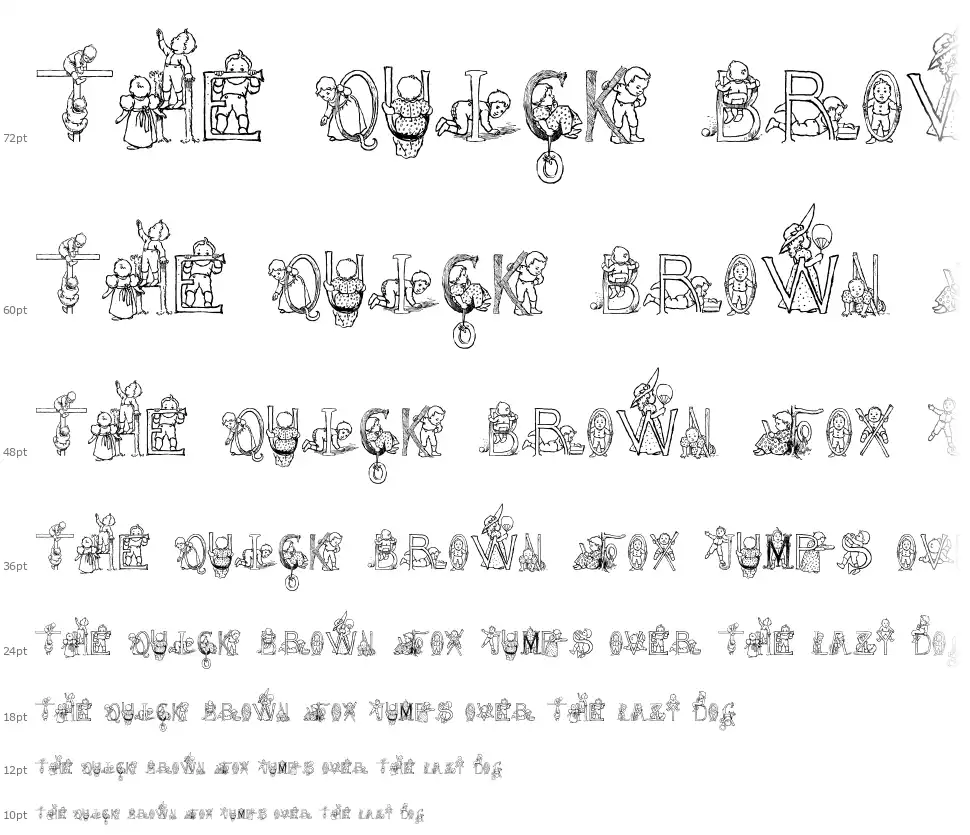 72pt THE QUICK BROW
60pt THE QUICK BROWN
48pt THE QUICK BROWN FOX
36pt THE QUICK BROWN FOX JUMPS OV
24pt THE QUICK BROWN FOX JUMPS OVER THE LAZY DO
18pt THE QUICK BROWN FOX JUMPS OVER THE LAZY DOG
12pt THE QUICK BROWN FOX JUMPS OVER THE LAZY DOG
10pt THE QUICK BROWN FOX JUMPS OVER THE LAZY DOG